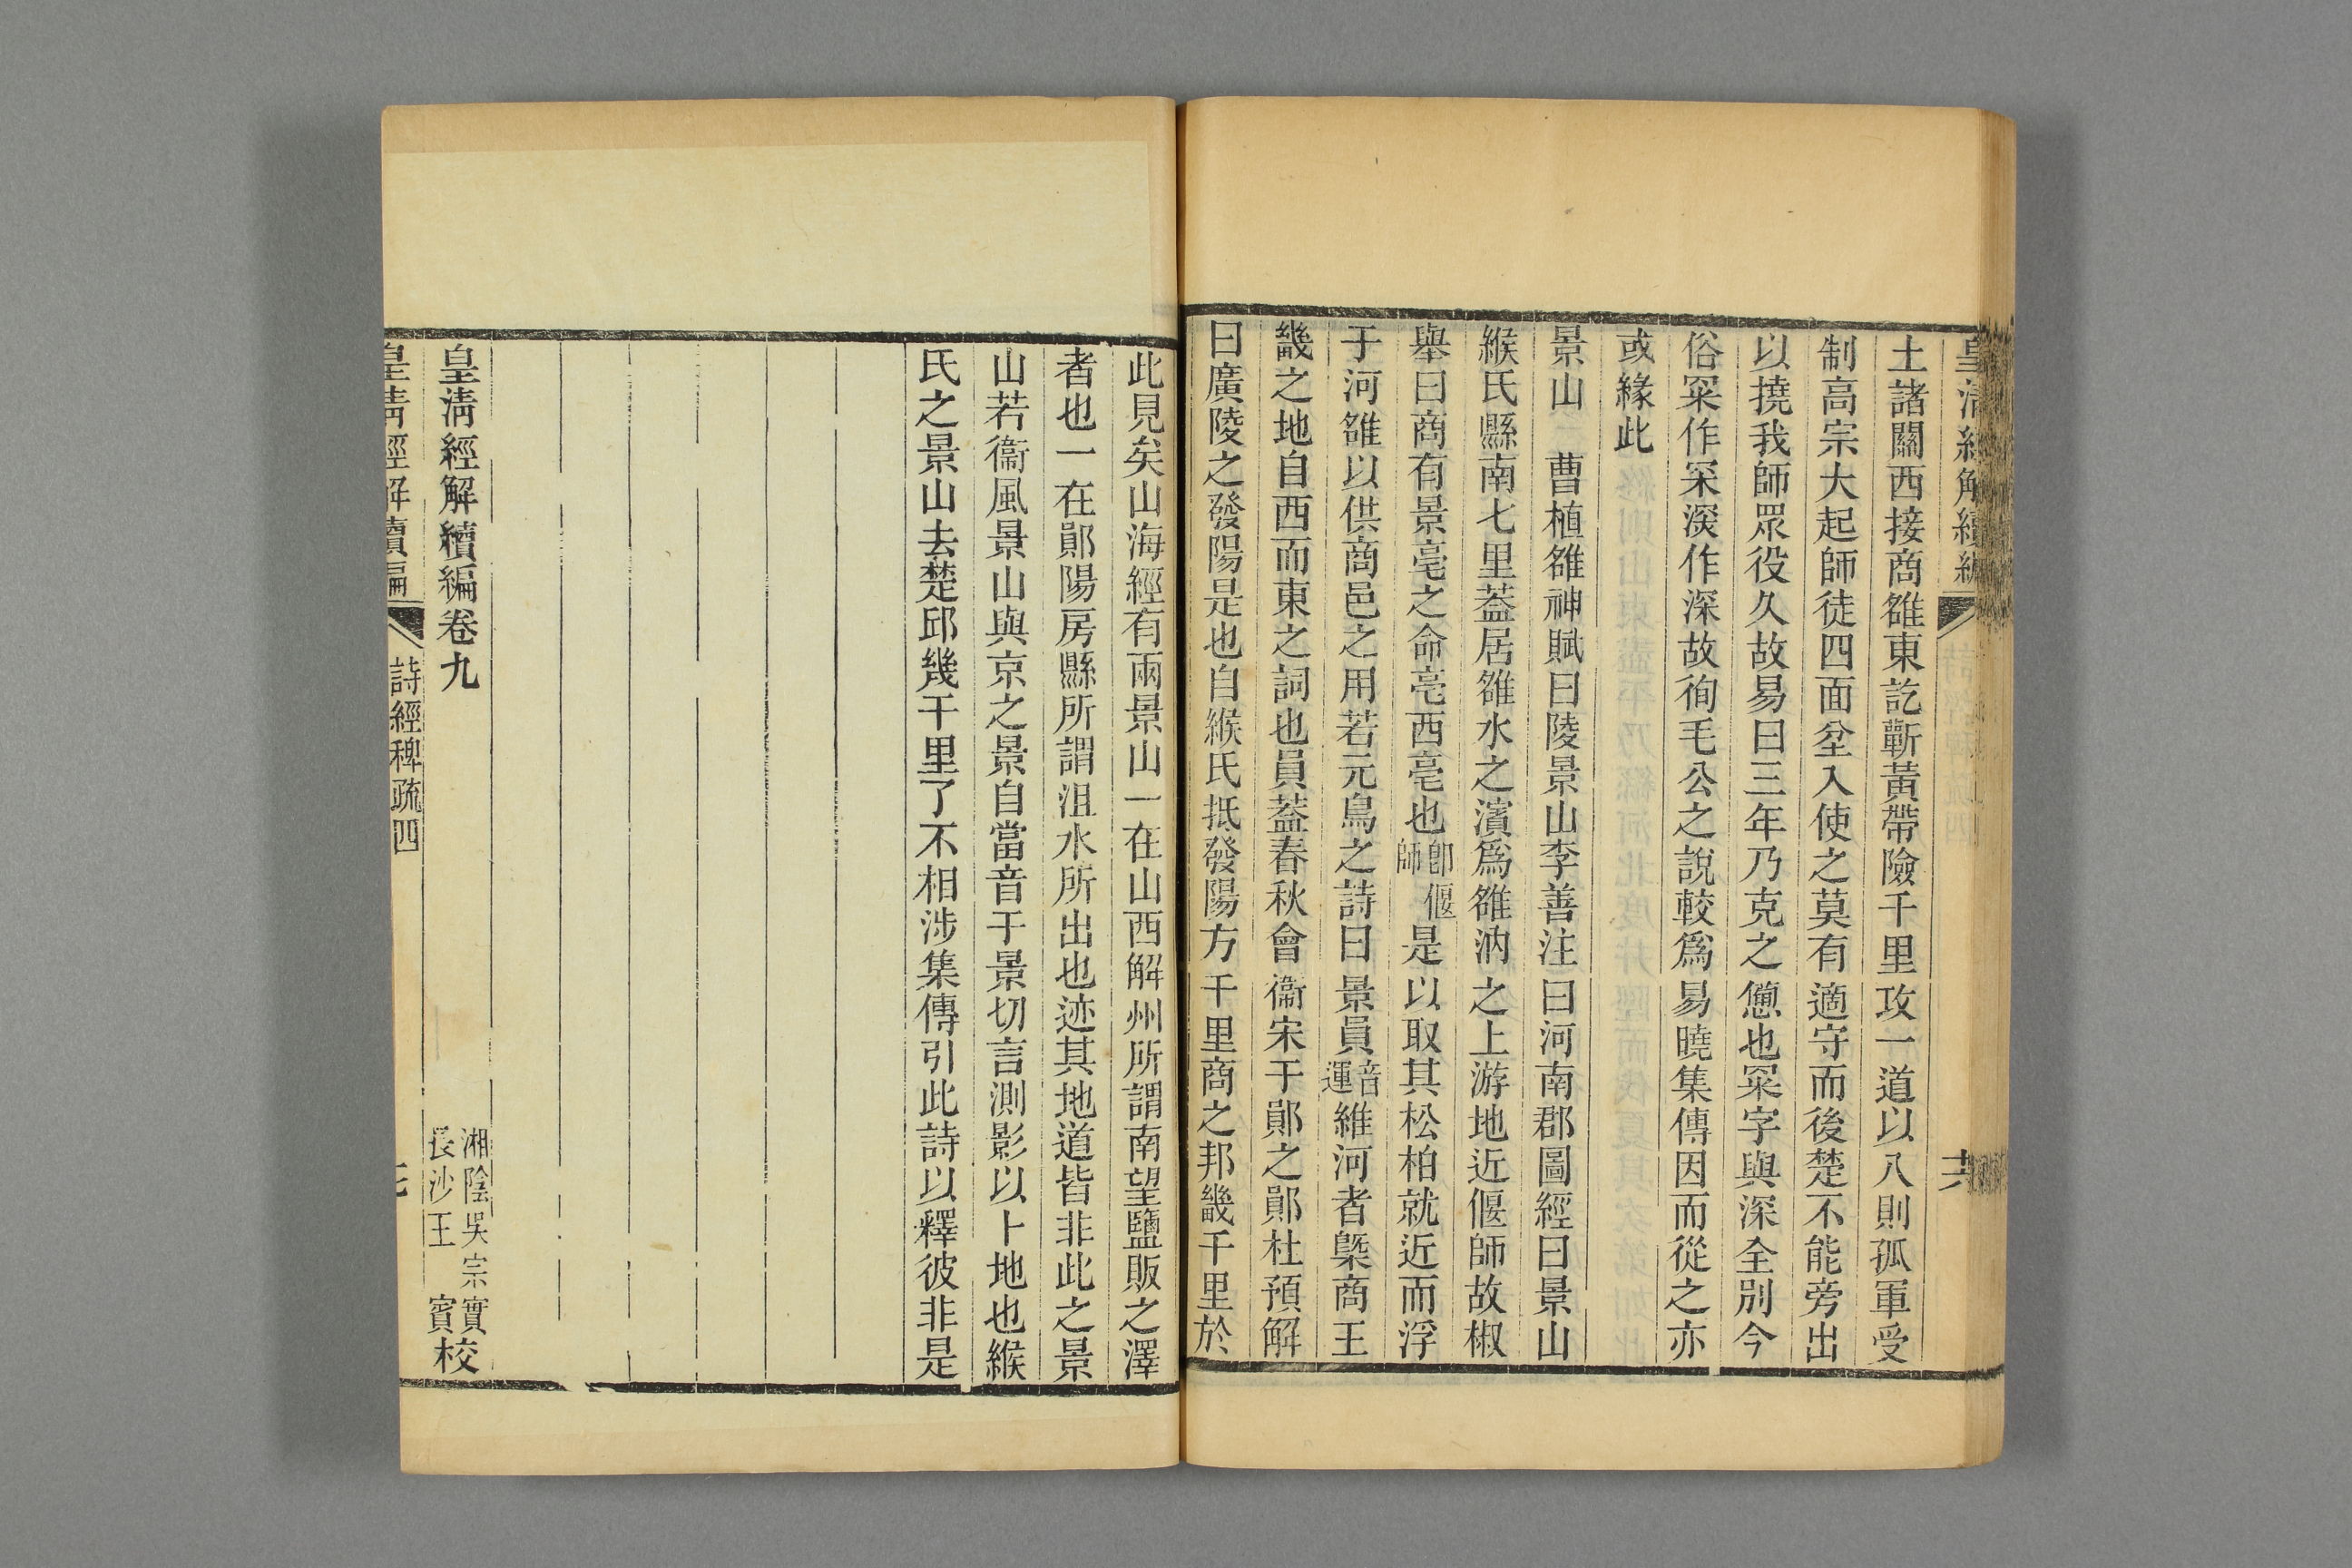 皇清經解續編
土諸關西接商雒東訖蘄黃帶險千里攻一道以入則孤軍受
制高宗大起師徒四面坌入使之莫有適守而後楚不能旁出
以撓我師眾役久故易曰三年乃克之憊也罙字與深全別今
俗罙作罙㴱作深故徇毛公之說較爲易曉集傳因而從之亦
或緣此
景山　曹植雒神賦曰陵景山李善注曰河南郡圖經曰景山
緱氏縣南七里葢居雒水之濱爲雒汭之上游地近偃師故椒
舉曰商有景亳之命亳西亳也卽偃師是以取其松柏就近而浮
于河雒以供商邑之用若元鳥之詩曰景員音運維河者槩商王
畿之地自西而東之詞也員葢春秋會衞宋于鄖之鄖杜預解
曰廣陵之發陽是也自緱氏抵發陽方千里商之邦畿千里於
此見矣山海經有兩景山一在山西解州所謂南望鹽販之澤
者也一在鄖陽房縣所謂沮水所出也迹其地道皆非此之景
山若衞風景山與京之景自當音于景切言測影以卜地也緱
氏之景山去楚邱幾千里了不相涉集傳引此詩以釋彼非是
皇淸經解續編卷九
湘陰吳宗實
長沙王　賓校
皇淸經解續編
詩經稗疏四